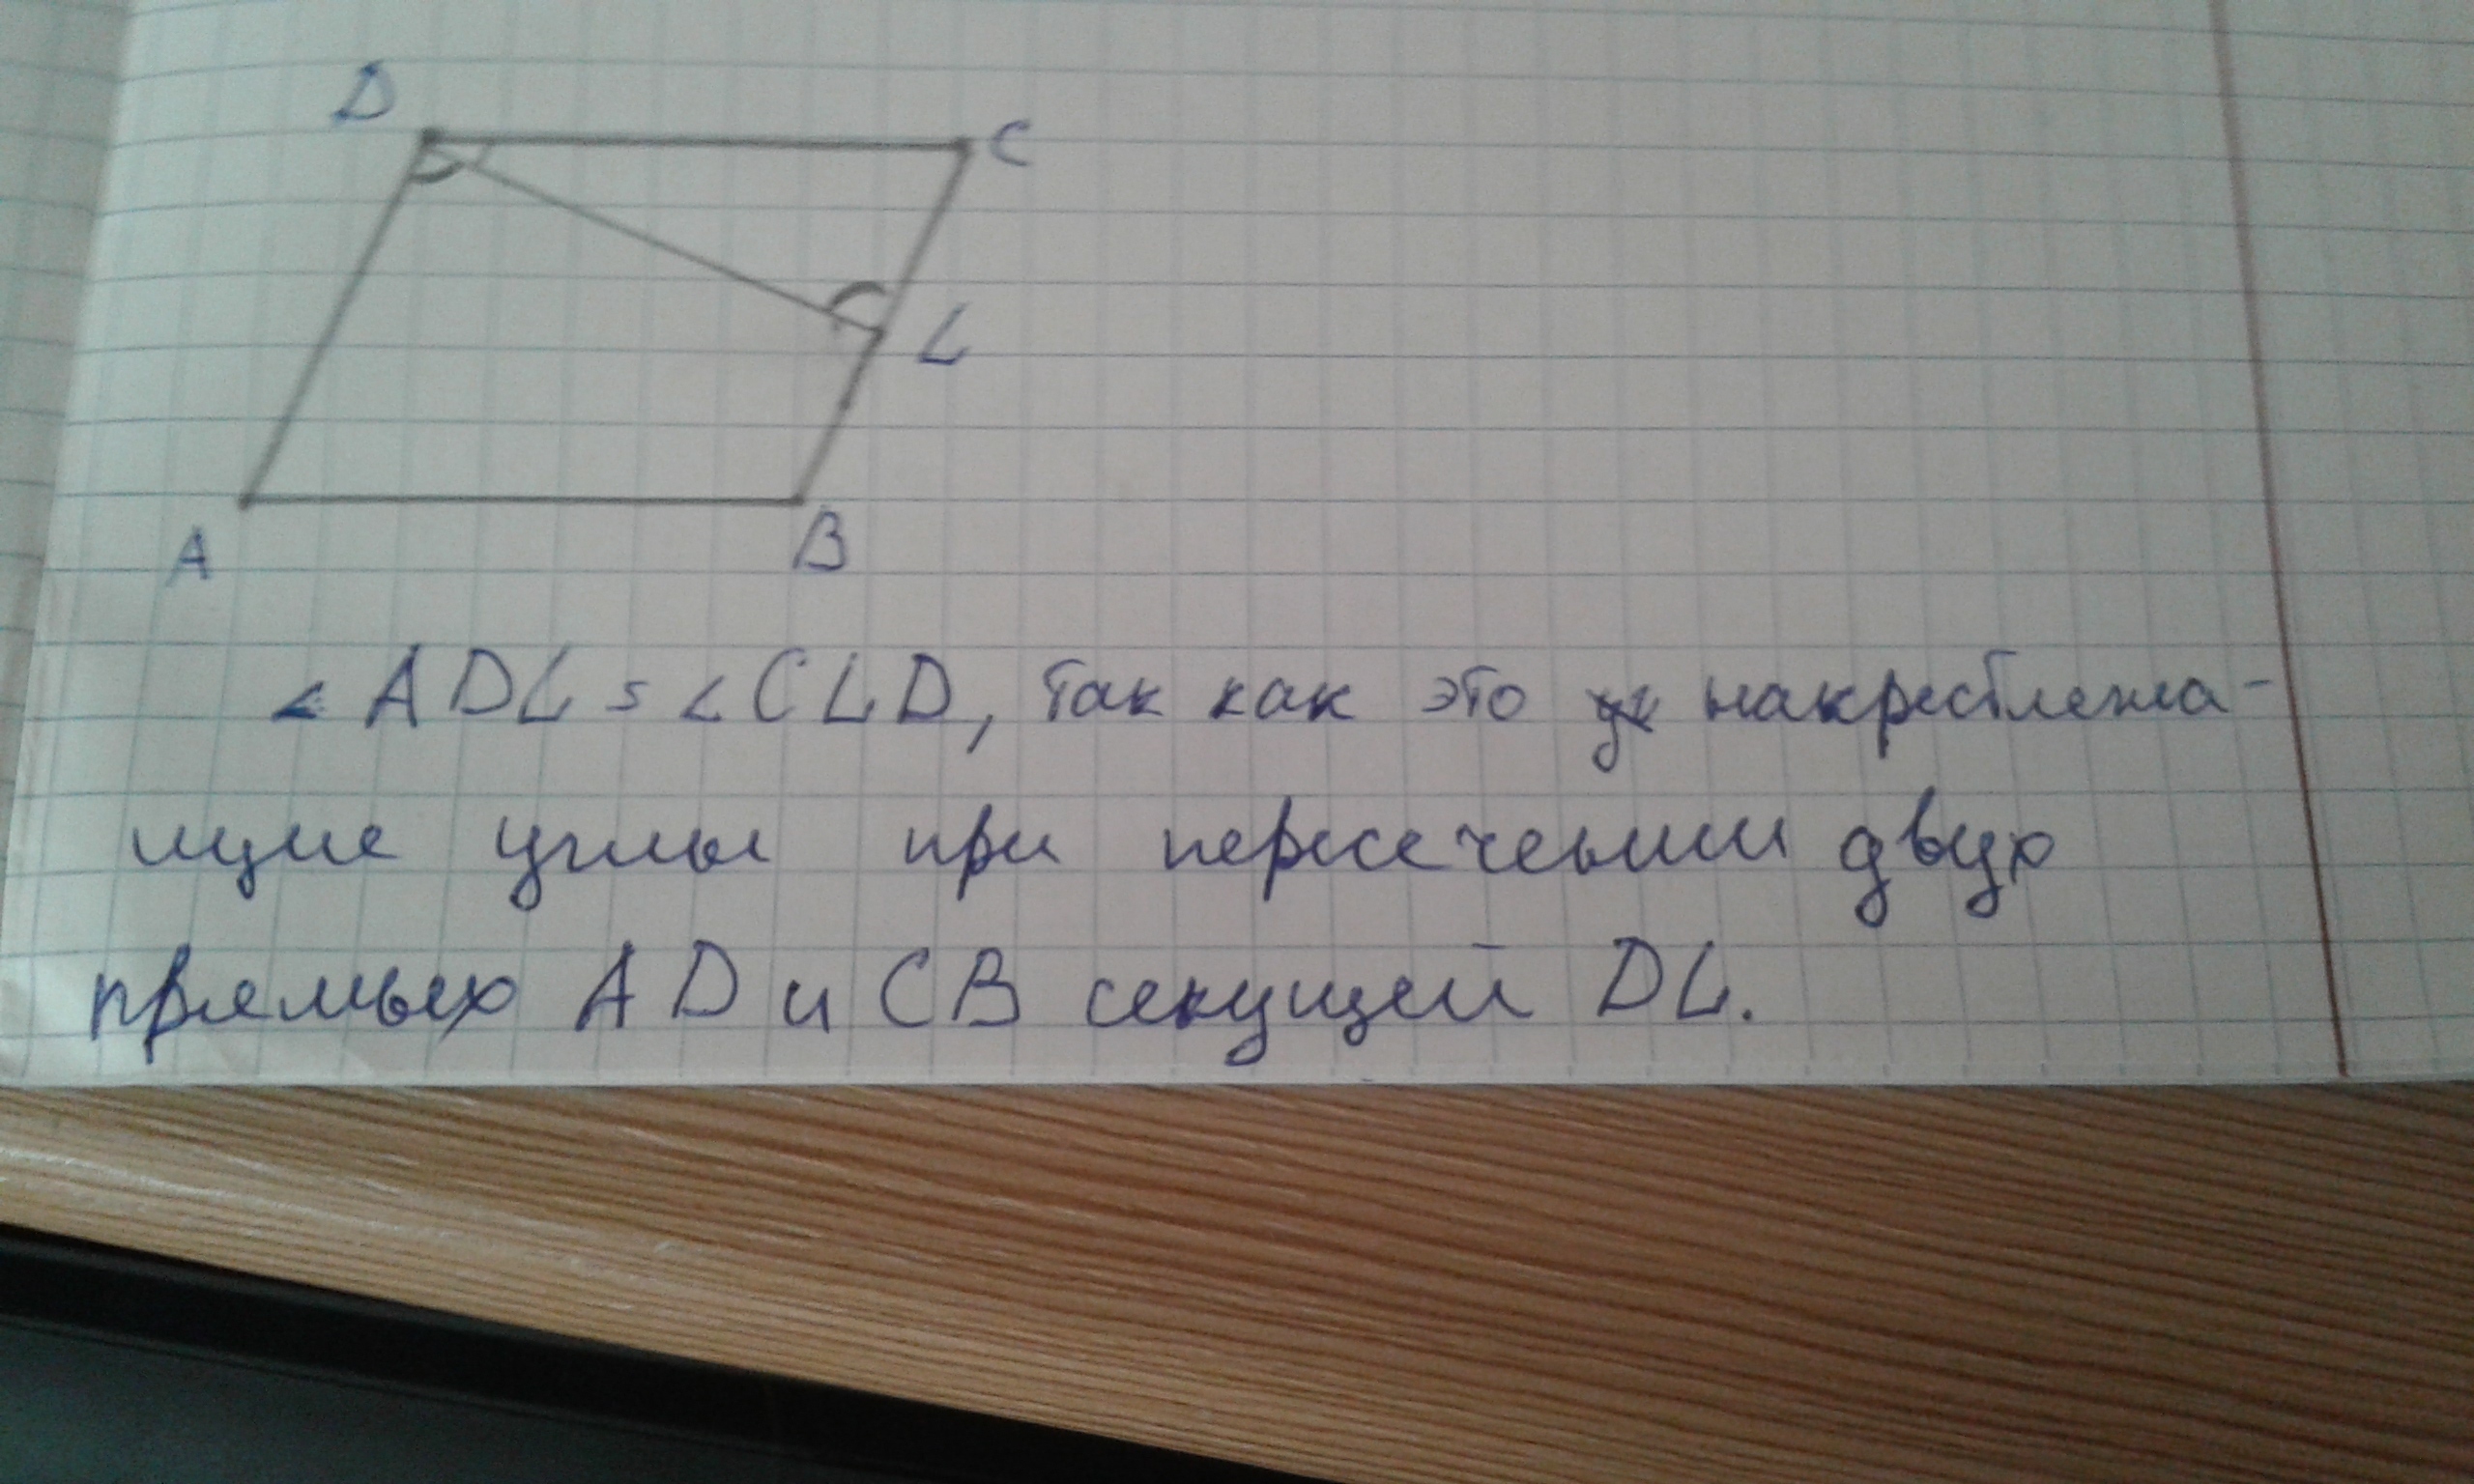 D
C
L
A
B
∠ADL = ∠CLD, так как это накрестлежа-
щие углы при пересечении двух
прямых AD и CB секущей DL.